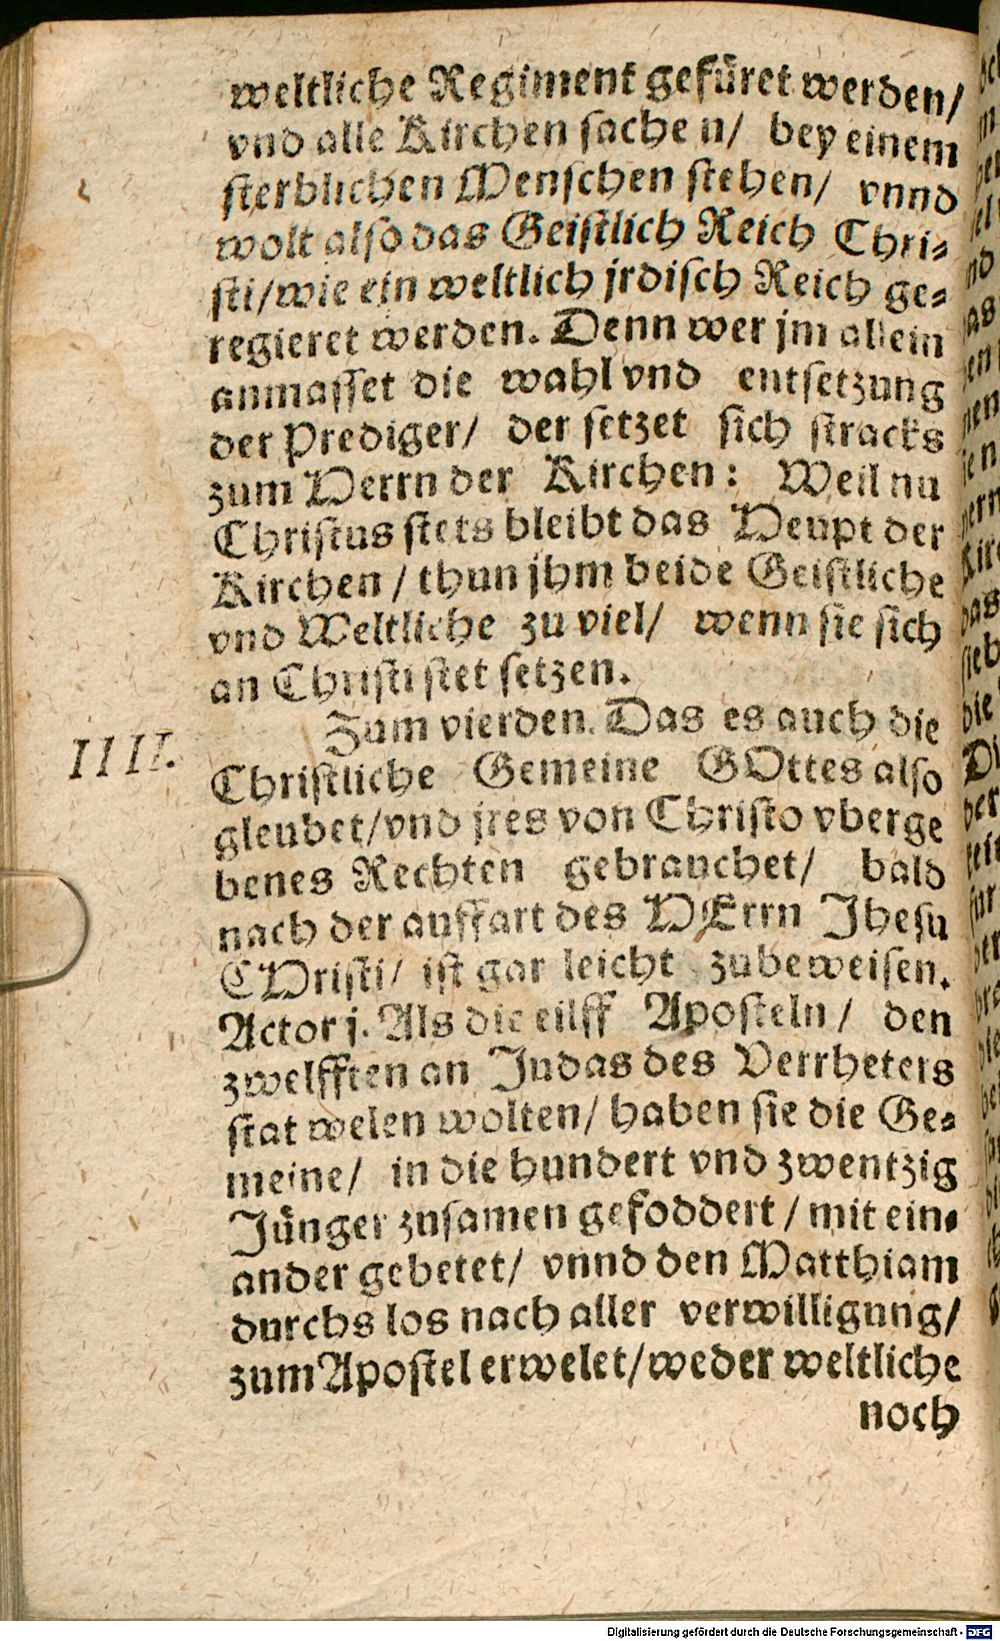 weltliche Regiment gefüret werden/
vnd alle Kirchen sachen/ bey einem
sterblichen Menschen stehen/ vnnd
wolt also das Geistlich Reich Chri⸗
sti/wie ein weltlich jrdisch Reich ge⸗
regieret werden. Denn wer jm allein
anmasset die wahl vnd entsetzung
der Prediger/ der setzet sich stracks
zum Herrn der Kirchen: Weil nu
Christus stets bleibt das Heupt der
Kirchen / thun jhm beide Geistliche
vnd Weltliche zu viel/ wenn sie sich
an Christi stet setzen.
IIII.
Zum vierden. Das es auch die
Christliche Gemeine GOttes also
gleubet/vnd jres von Christo vberge
benes Rechten gebrauchet/ bald
nach der auffart des HErrn Jhesu
CHristi/ ist gar leicht zubeweisen.
Actor j. Als die eilff Aposteln / den
zwelfften an Judas des Verrheters
stat welen wolten/ haben sie die Ge⸗
meine/ in die hundert vnd zwentzig
Jünger zusamen gefoddert / mit ein⸗
ander gebetet/ vnnd den Matthiam
durchs los nach aller verwilligung/
zum Apostel erwelet/weder weltliche
noch
Digitalisierung gefördert durch die Deutsche Forschungsgemeinschaft - DFG